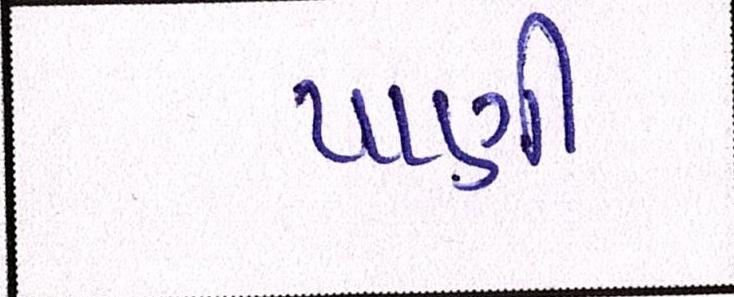 પાણી